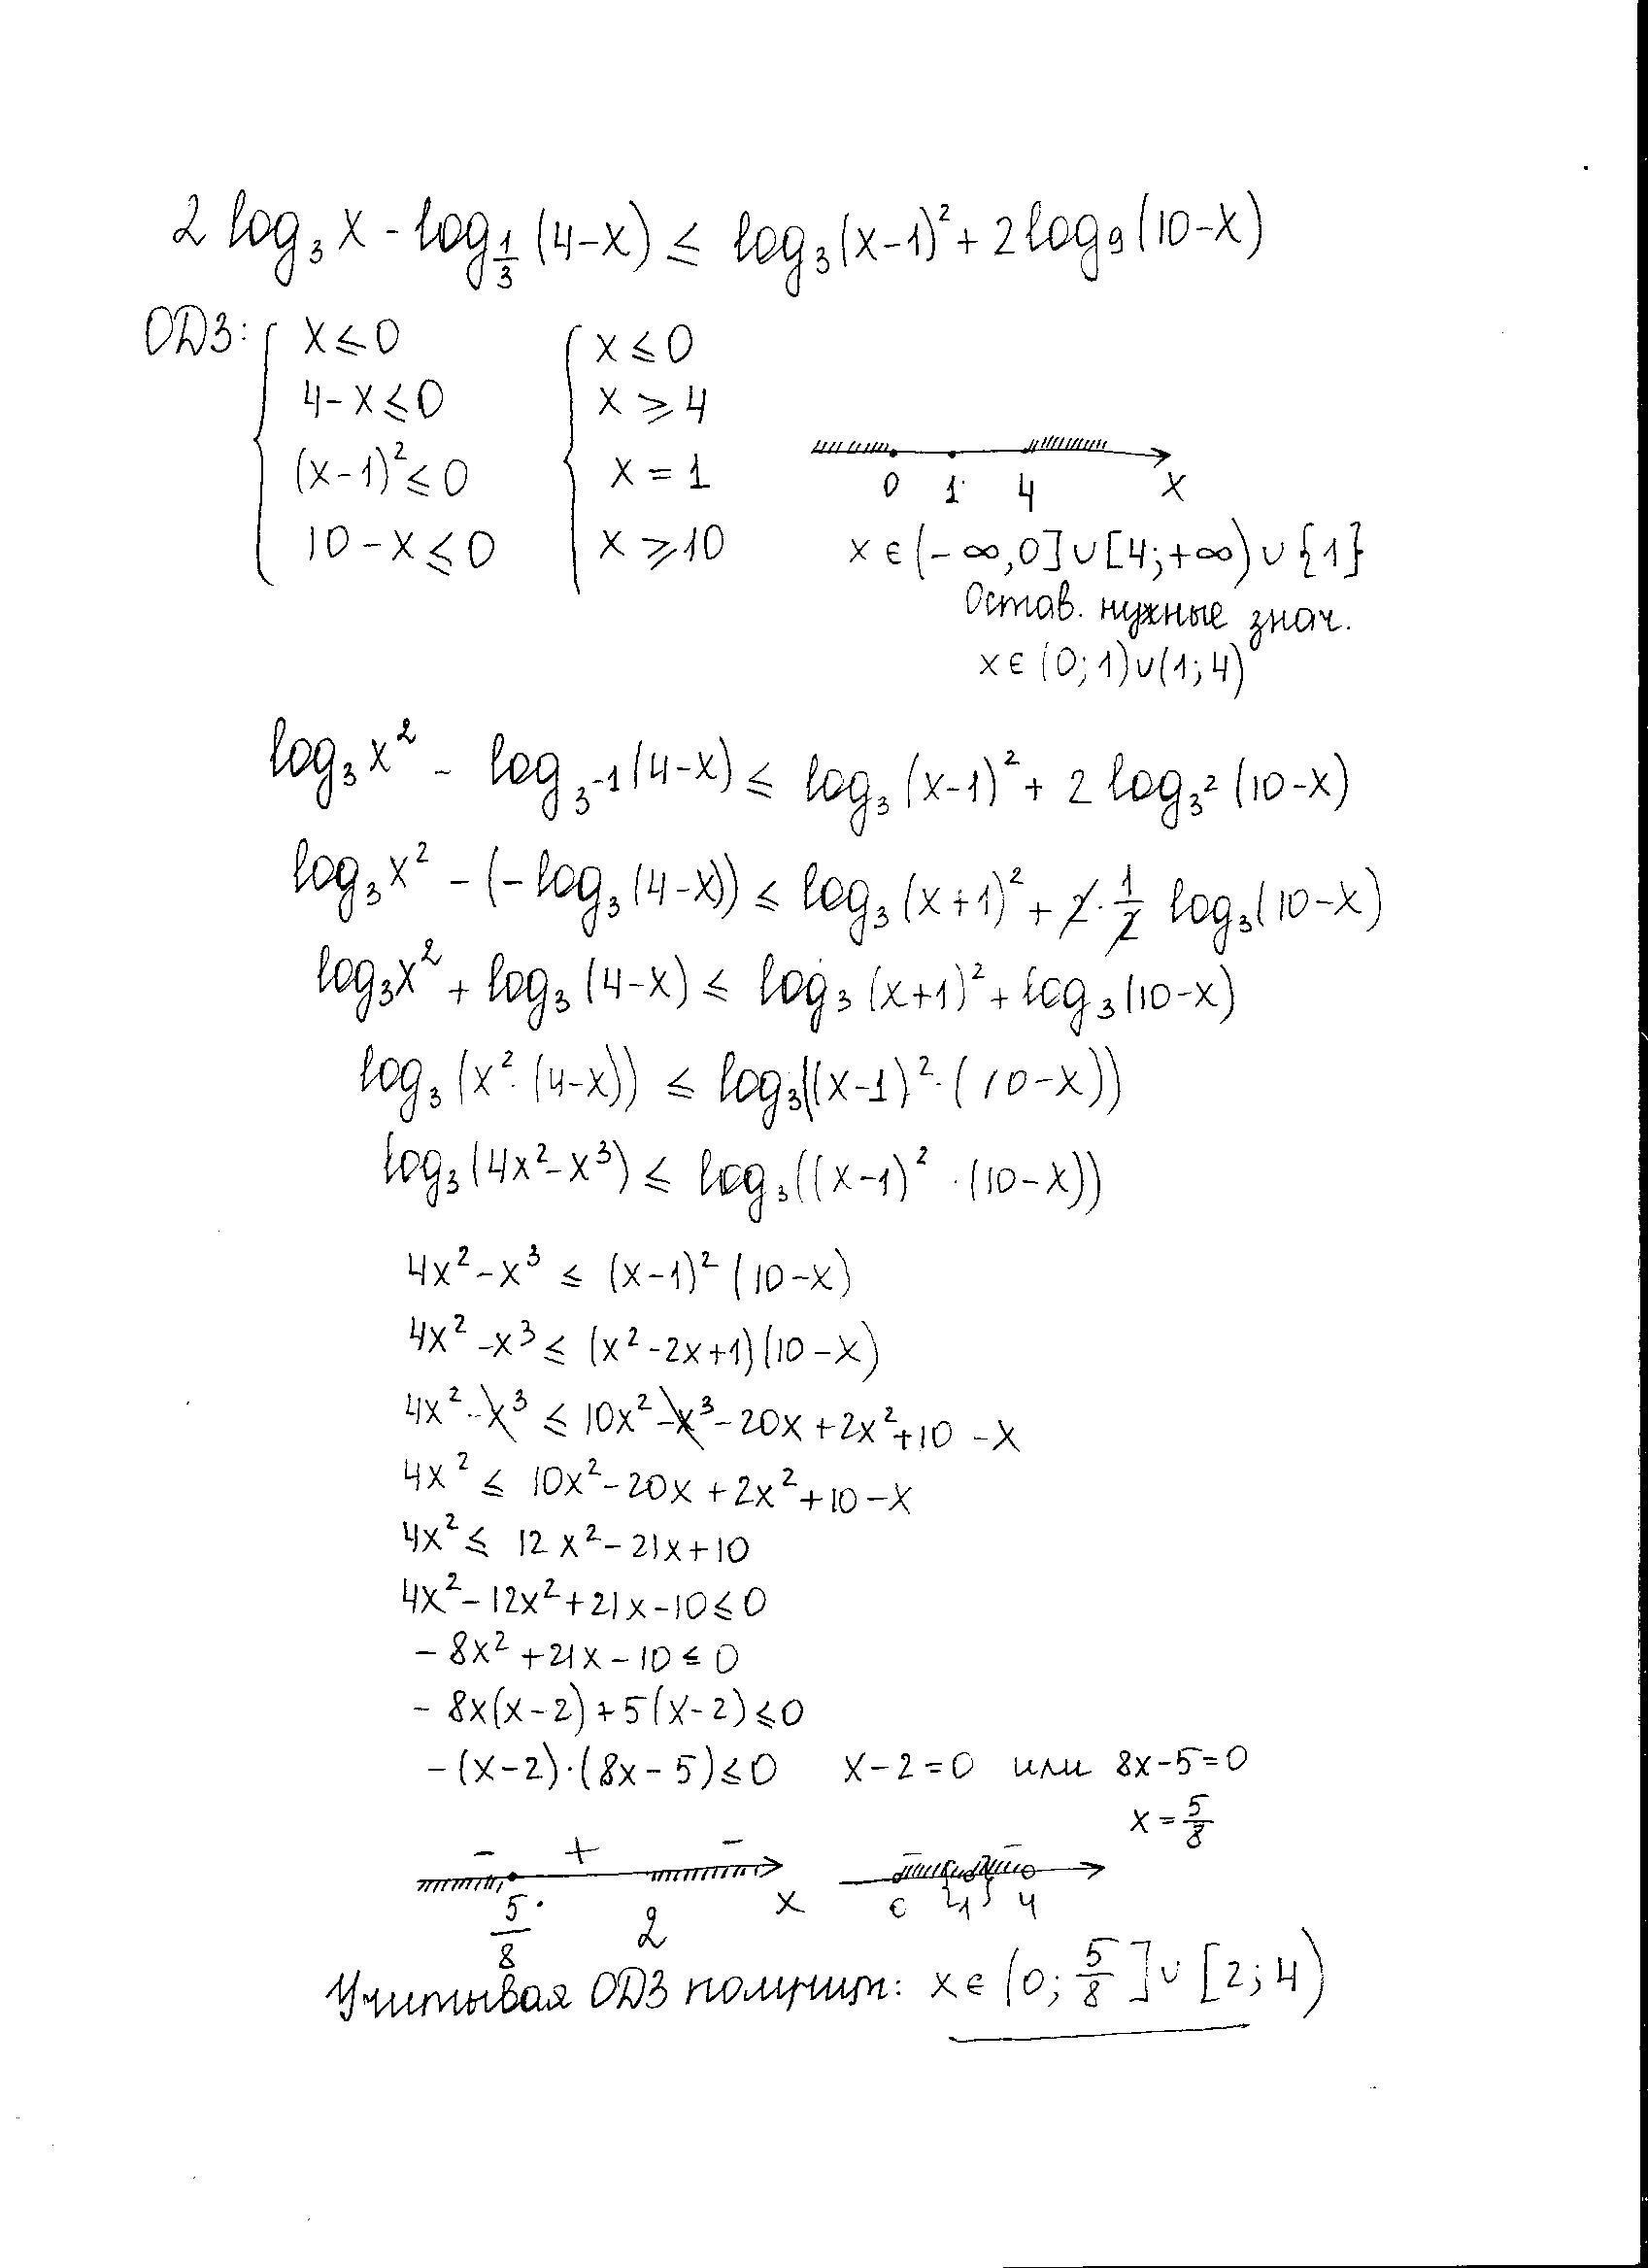 2 log₃ x - log_{1/3} (4-x) ≤ log₃(x-1)² + 2log₉(10-x)
ОДЗ: { x ≤ 0 { x ≤ 0
4-x ≤ 0 x ⩾ 4
(x-1)² ≤ 0 x = 1
10-x ≤ 0 x ⩾ 10
0 1 4 x
x ∈ (-∞,0] ∪ [4;+∞) ∪ {1}
Остав. нужные знач.
x ∈ (0;1)∪(1;4)
log₃ x² - log_{3^{-1}} (4-x) ≤ log₃ (x-1)² + 2 log_{3²} (10-x)
log₃ x² - (-log₃ (4-x)) ≤ log₃ (x+1)² + 2 · 1/2 log₃(10-x)
log₃ x² + log₃ (4-x) ≤ log₃ (x+1)² + log₃ (10-x)
log₃ (x² · (4-x)) ≤ log₃((x-1)² · (10-x))
log₃ (4x²-x³) ≤ log₃((x-1)² · (10-x))
4x²-x³ ≤ (x-1)² (10-x)
4x²-x³ ≤ (x²-2x+1)(10-x)
4x²-x³ ≤ 10x²-x³-20x+2x²+10-x
4x² ≤ 10x²-20x+2x²+10-x
4x² ≤ 12x²-21x+10
4x²-12x²+21x-10 ≤ 0
-8x²+21x-10 ≤ 0
-8x(x-2)+5(x-2) ≤ 0
-(x-2)·(8x-5) ≤ 0 x-2=0 или 8x-5=0
x = 5/8
- + - - -
5/8 2 x 0 {1} 4
Учитывая ОДЗ получим: x ∈ (0; 5/8] ∪ [2; 4)